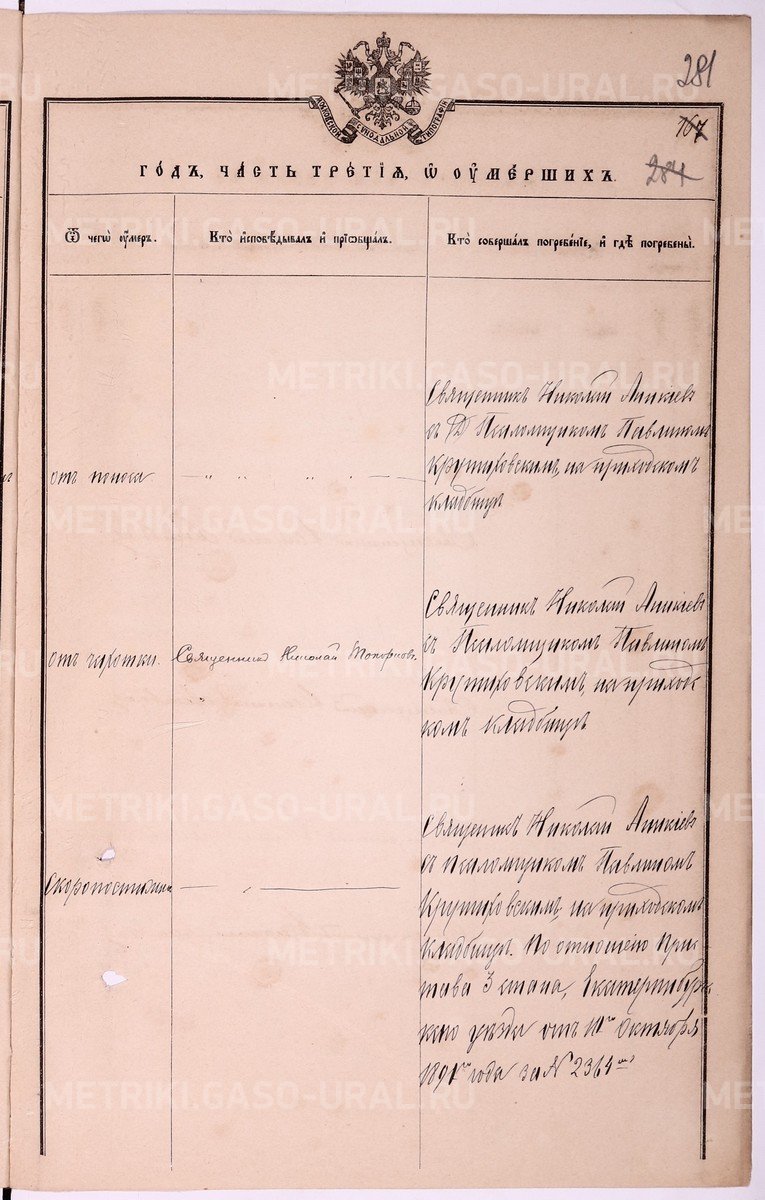 281
167
284
МОСКОВСКОЙ СѴНОДАЛЬНОЙ ТИПОГРАФІИ
го́дъ, ча́сть тре́тїѧ, ѡ҆ ᲂу҆ме́ршихъ.
Ѿ чегѡ̀ ᲂу҆́меръ.
Кто̀ и҆сповѣ́дывалъ и҆ прїѡбща́лъ.
Кто̀ соверша́лъ погребе́нїе, и҆ гдѣ̀ погребены̀.
отъ поноса
— „ „ „ „ —
Священникъ Николай Аникіевъ
съ Псаломщикомъ Павлиномъ
Крутиховскимъ, на приходскомъ
кладбищѣ
отъ чахотки.
Священникъ Николай Топорковъ
Священникъ Николай Аникіевъ
съ Псаломщикомъ Павлиномъ
Крутиховскимъ, на приход
комъ кладбищѣ
Скоропостижно
— „ —
Священникъ Николай Аникіевъ
съ псаломщикомъ Павлиномъ
Крутиховскимъ, на приходскомъ
кладбищѣ. По отношенію Прис-
тава 3 стана, Екатеринбург
скаго уѣзда отъ Октября
года за № 2364
METRIKI.GASO-URAL.RU